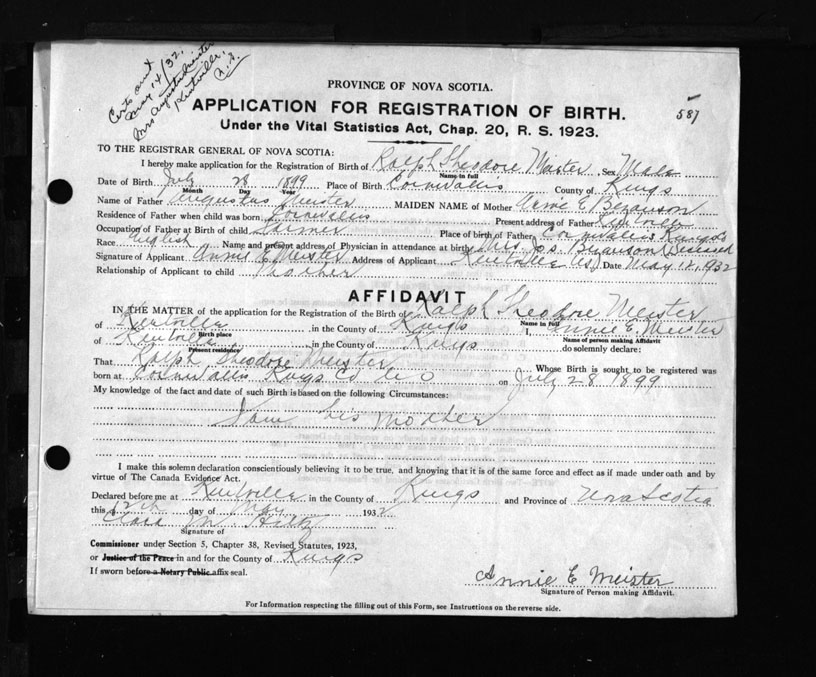 Certs sent
May 14/32,
Mrs Augustus Meister
Kentville,
N.S.
587
PROVINCE OF NOVA SCOTIA.
APPLICATION FOR REGISTRATION OF BIRTH.
Under the Vital Statistics Act, Chap. 20, R. S. 1923.
TO THE REGISTRAR GENERAL OF NOVA SCOTIA:
I hereby make application for the Registration of Birth of Ralph Theodore Meister Sex Male
Name in full
Date of Birth July 28 1899 Place of Birth Cornwallis County of Kings
Month Day Year
Name of Father Augustus Meister MAIDEN NAME of Mother Annie E
Residence of Father when child was born Cornwallis Present address of Father Kentville
Occupation of Father at Birth of child Farmer Place of birth of Father Cornwallis Kings Co
Race English Name and present address of Physician in attendance at birth Mrs. Jos. (Deceased
Signature of Applicant Annie E. Meister Address of Applicant Kentville N.S. Date May 12, 1932
Relationship of Applicant to child Mother
AFFIDAVIT
IN THE MATTER of the application for the Registration of the Birth of Ralph Theodore Meister
Name in full
of Kentville , in the County of Kings I, Annie E. Meister
Birth place Name of person making Affidavit
of Kentville , in the County of Kings do solemnly declare:
Present residence
That Ralph Theodore Meister Whose Birth is sought to be registered was
born at Cornwallis Kings Co N S on July 28 1899
My knowledge of the fact and date of such Birth is based on the following Circumstances:
I am his mother
I make this solemn declaration conscientiously believing it to be true, and knowing that it is of the same force and effect as if made under oath and by
virtue of The Canada Evidence Act.
Declared before me at Kentville in the County of Kings and Province of Nova Scotia
this 12th day of May 1932
Clara M. Hiltz
Signature of
Commissioner under Section 5, Chapter 38, Revised Statutes, 1923,
or Justice of the Peace in and for the County of Kings
If sworn before a Notary Public affix seal.
Annie E Meister
Signature of Person making Affidavit.
For Information respecting the filling out of this Form, see Instructions on the reverse side.